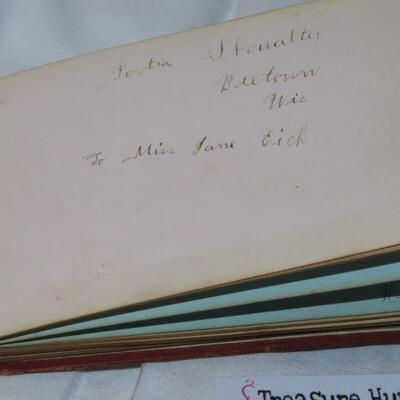 Portia Showalter
Beetown
Wis
To Miss Jane Eich
Treasure Hun